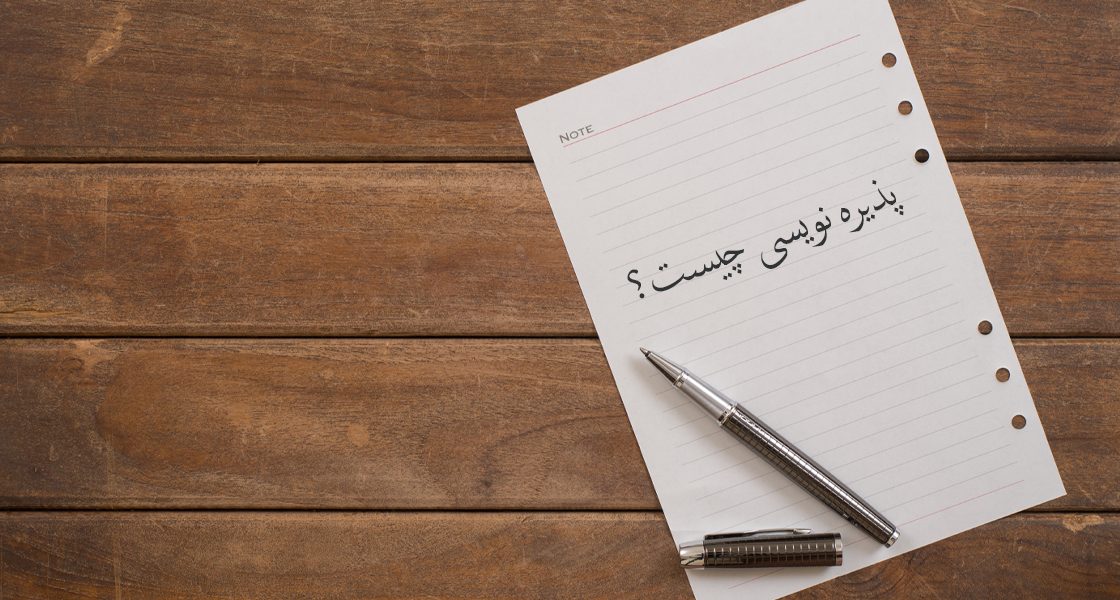 NOTE
پذیره نویسی چیست؟